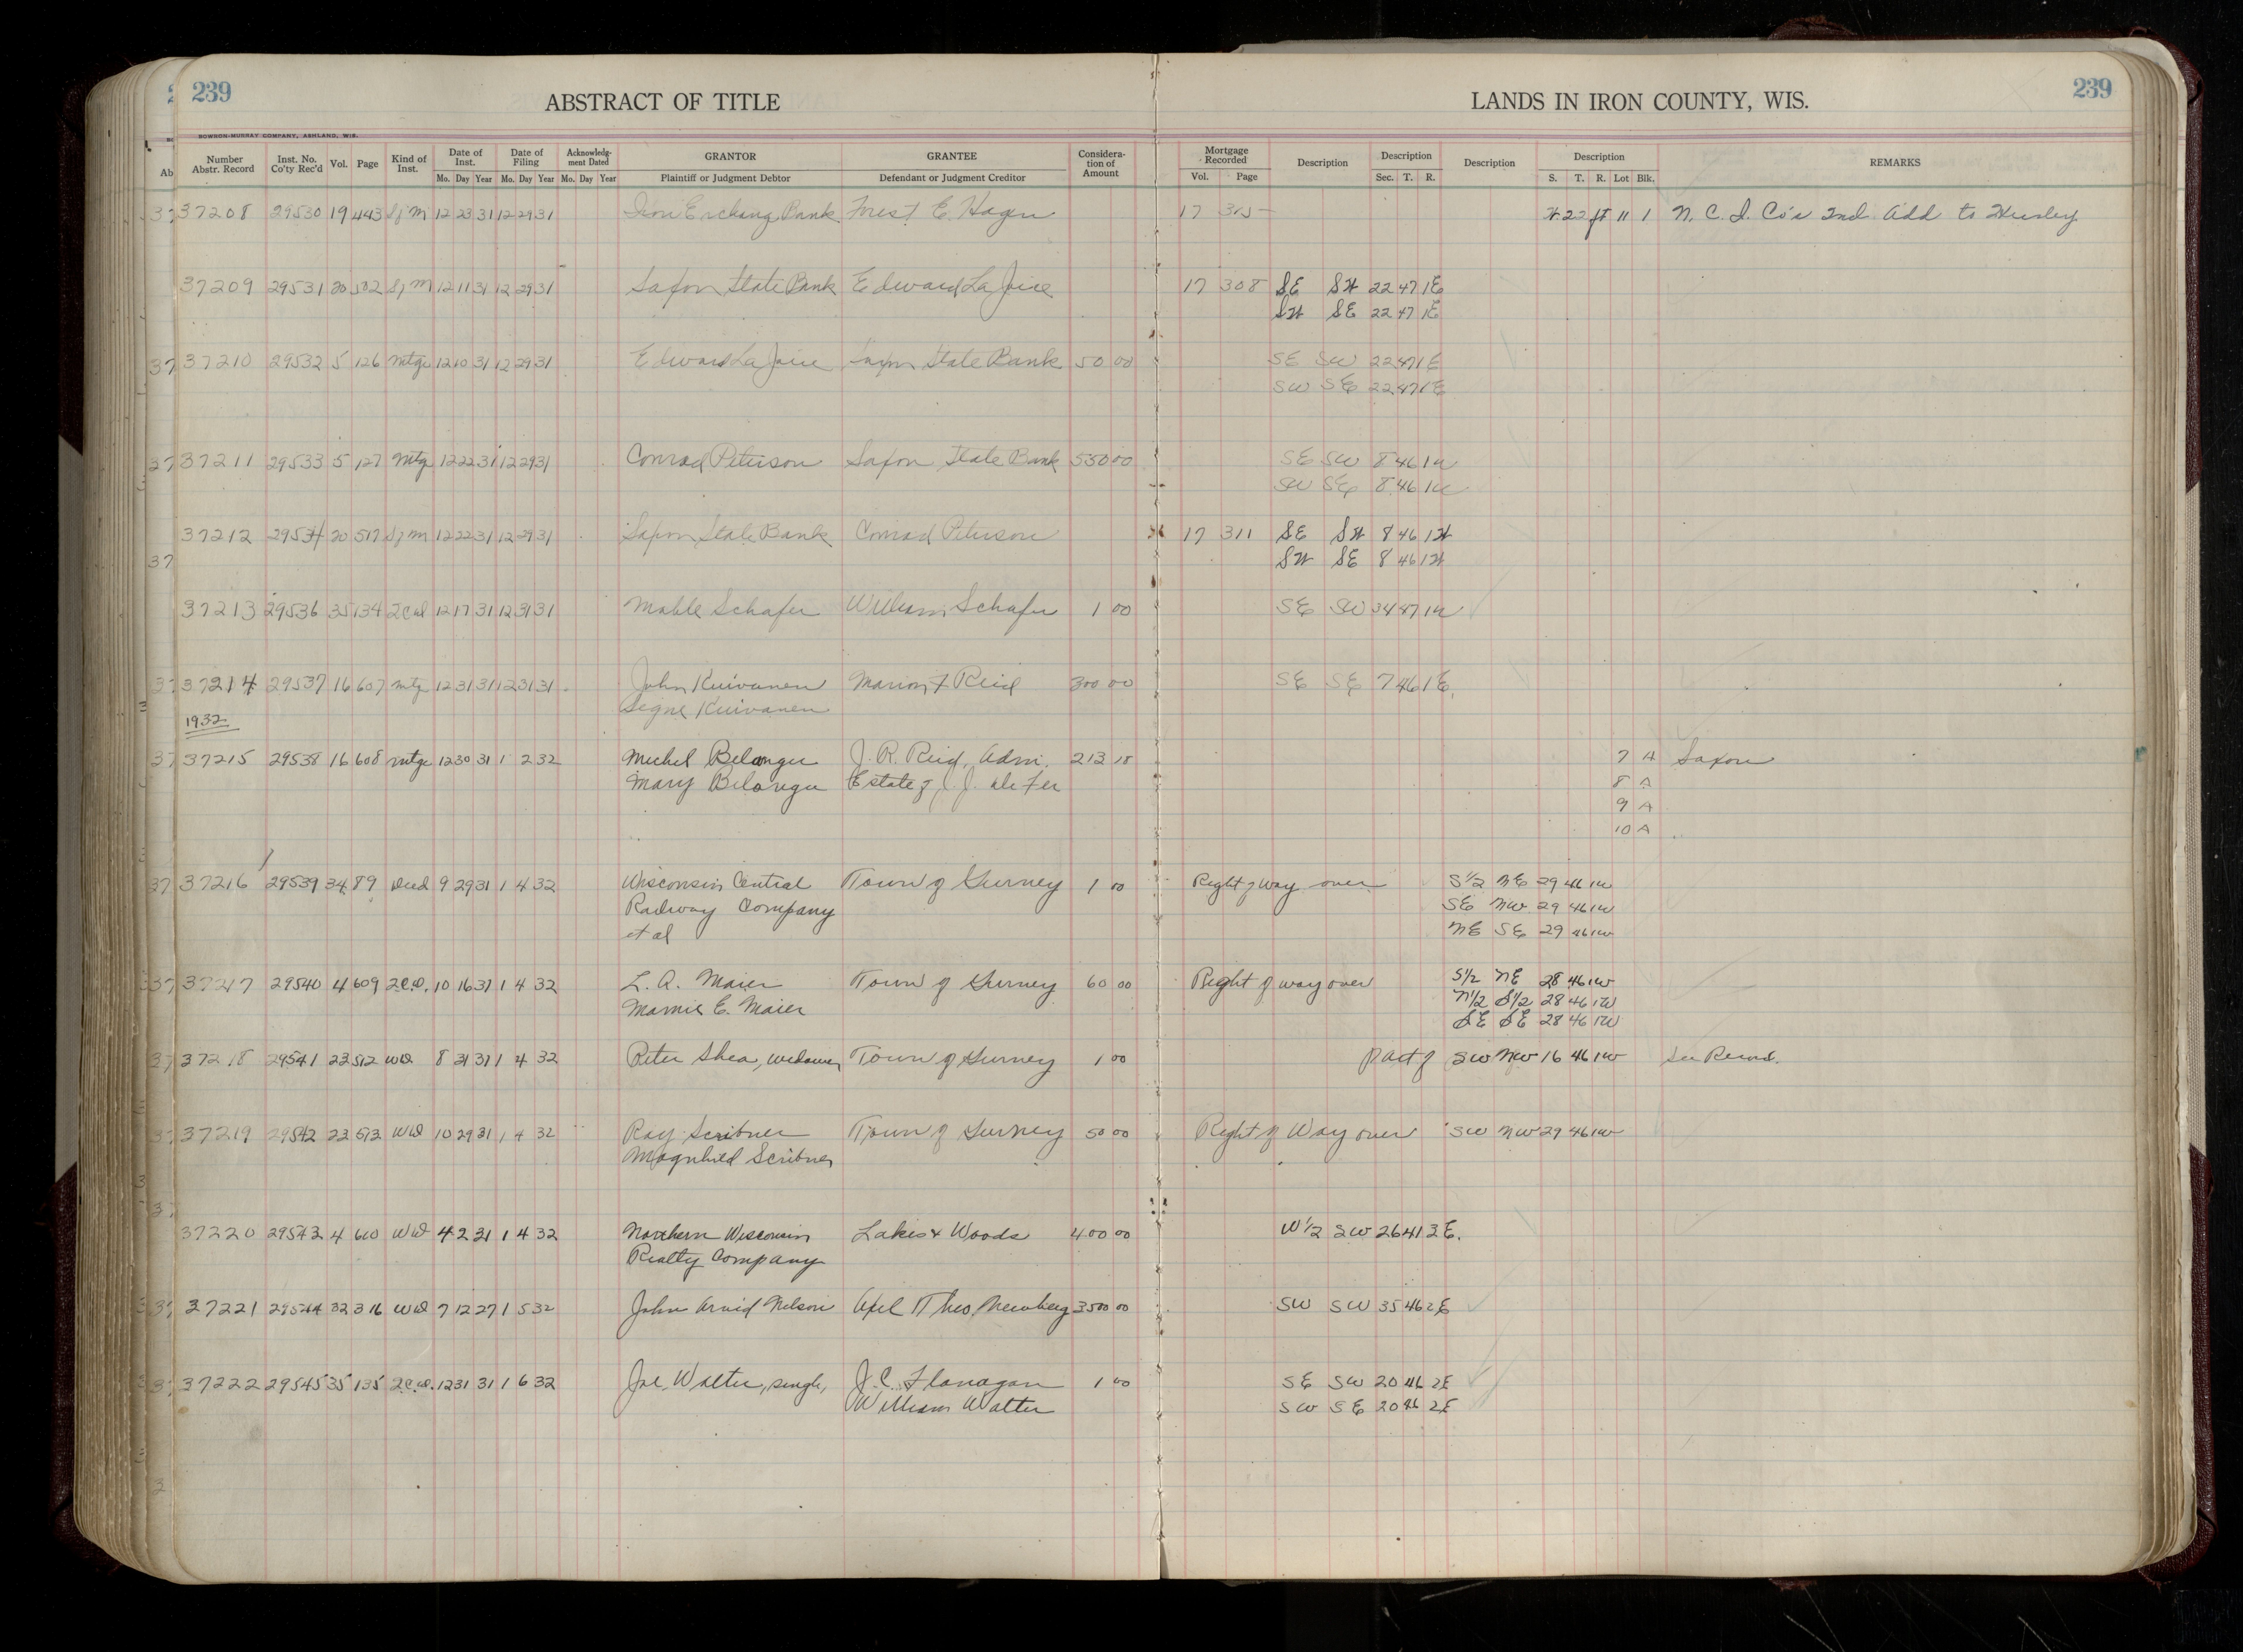 239
ABSTRACT OF TITLE
LANDS IN IRON COUNTY, WIS.
239
BOWRON-MURRAY COMPANY, ASHLAND, WIS.
Number Abstr. Record | Inst. No. Co'ty Rec'd | Vol. | Page | Kind of Inst. | Date of Inst. Mo. Day Year | Date of Filing Mo. Day Year | Acknowledgment Dated Mo. Day Year | GRANTOR Plaintiff or Judgment Debtor | GRANTEE Defendant or Judgment Creditor | Consideration of Amount | Mortgage Recorded Vol. Page | Description | Description Sec. T. R. | Description | Description S. T. R. Lot Blk. | REMARKS
37208 29530 19 443 Sf M 12 23 31 12 29 31 Iron Exchang Bank Forest E. Hagen 17 315 W 22 ft 11 1 N. C. I. Co's 2nd Add to Hurley
37209 29531 20 502 Sf M 12 11 31 12 29 31 Saxon State Bank Edward La Joie 17 308 SE SW 22 47 1E
SW SE 22 47 1E
37210 29532 5 126 Mtge 12 10 31 12 29 31 Edward La Joie Saxon State Bank 50 00 SE SW 22 47 1E
SW SE 22 47 1E
37211 29533 5 127 Mtg 12 22 31 12 29 31 Conrad Peterson Saxon State Bank 550 00 SE SW 8 46 1W
SW SE 8 46 1W
37212 29534 20 517 Sf M 12 22 31 12 29 31 Saxon State Bank Conrad Peterson 17 311 SE SW 8 46 1W
SW SE 8 46 1W
37213 29536 35 134 2 C D 12 17 31 12 31 31 Mable Schafer William Schafer 1 00 SE SW 34 47 1W
37214 29537 16 607 Mtg 12 31 31 12 31 31 John Kuivanen Marion F Reid 300 00 SE SE 7 46 1E
Segne Kuivanen
1932
37215 29538 16 608 Mtge 12 30 31 1 2 32 Michel Belanger J. R. Reid, Adm. 213 18 7 A Saxon
Mary Belanger Estate of J. J. 8 A
9 A
10 A
37216 29539 34 89 Deed 9 29 31 1 4 32 Wisconsin Central Town of Gurney 1 00 Right of way over S1/2 NE 29 46 1W
Railway Company SE NW 29 46 1W
et al NE SE 29 46 1W
37217 29540 4 609 2 C. D. 10 16 31 1 4 32 L. A. Maier Town of Gurney 60 00 Right of way over S1/2 NE 28 46 1W
Mamie E. Maier N1/2 S1/2 28 46 1W
SE SE 28 46 1W
37218 29541 23 512 WD 8 31 31 1 4 32 Peter Shea, widower, Town of Gurney 1 00 part of SW NW 16 46 1W See Record.
37219 29542 23 513 WD 10 29 31 1 4 32 Ray Scribner Town of Gurney 50 00 Right of Way over SW NW 29 46 1W
Magnhild Scribner
37220 29543 4 610 WD 4 2 31 1 4 32 Northern Wisconsin Lakes & Woods 400 00 W1/2 SW 26 41 3E.
Realty Company
37221 29544 32 316 WD 7 12 27 1 5 32 John Arvid Nelson Axel Theo. Newberg 3500 00 SW SW 35 46 2E
37222 29545 35 135 2 C. D. 12 31 31 1 6 32 Joe Walter, single, J. C. Flanagan 1 00 SE SW 20 46 2E
William Walter SW SE 20 46 2E